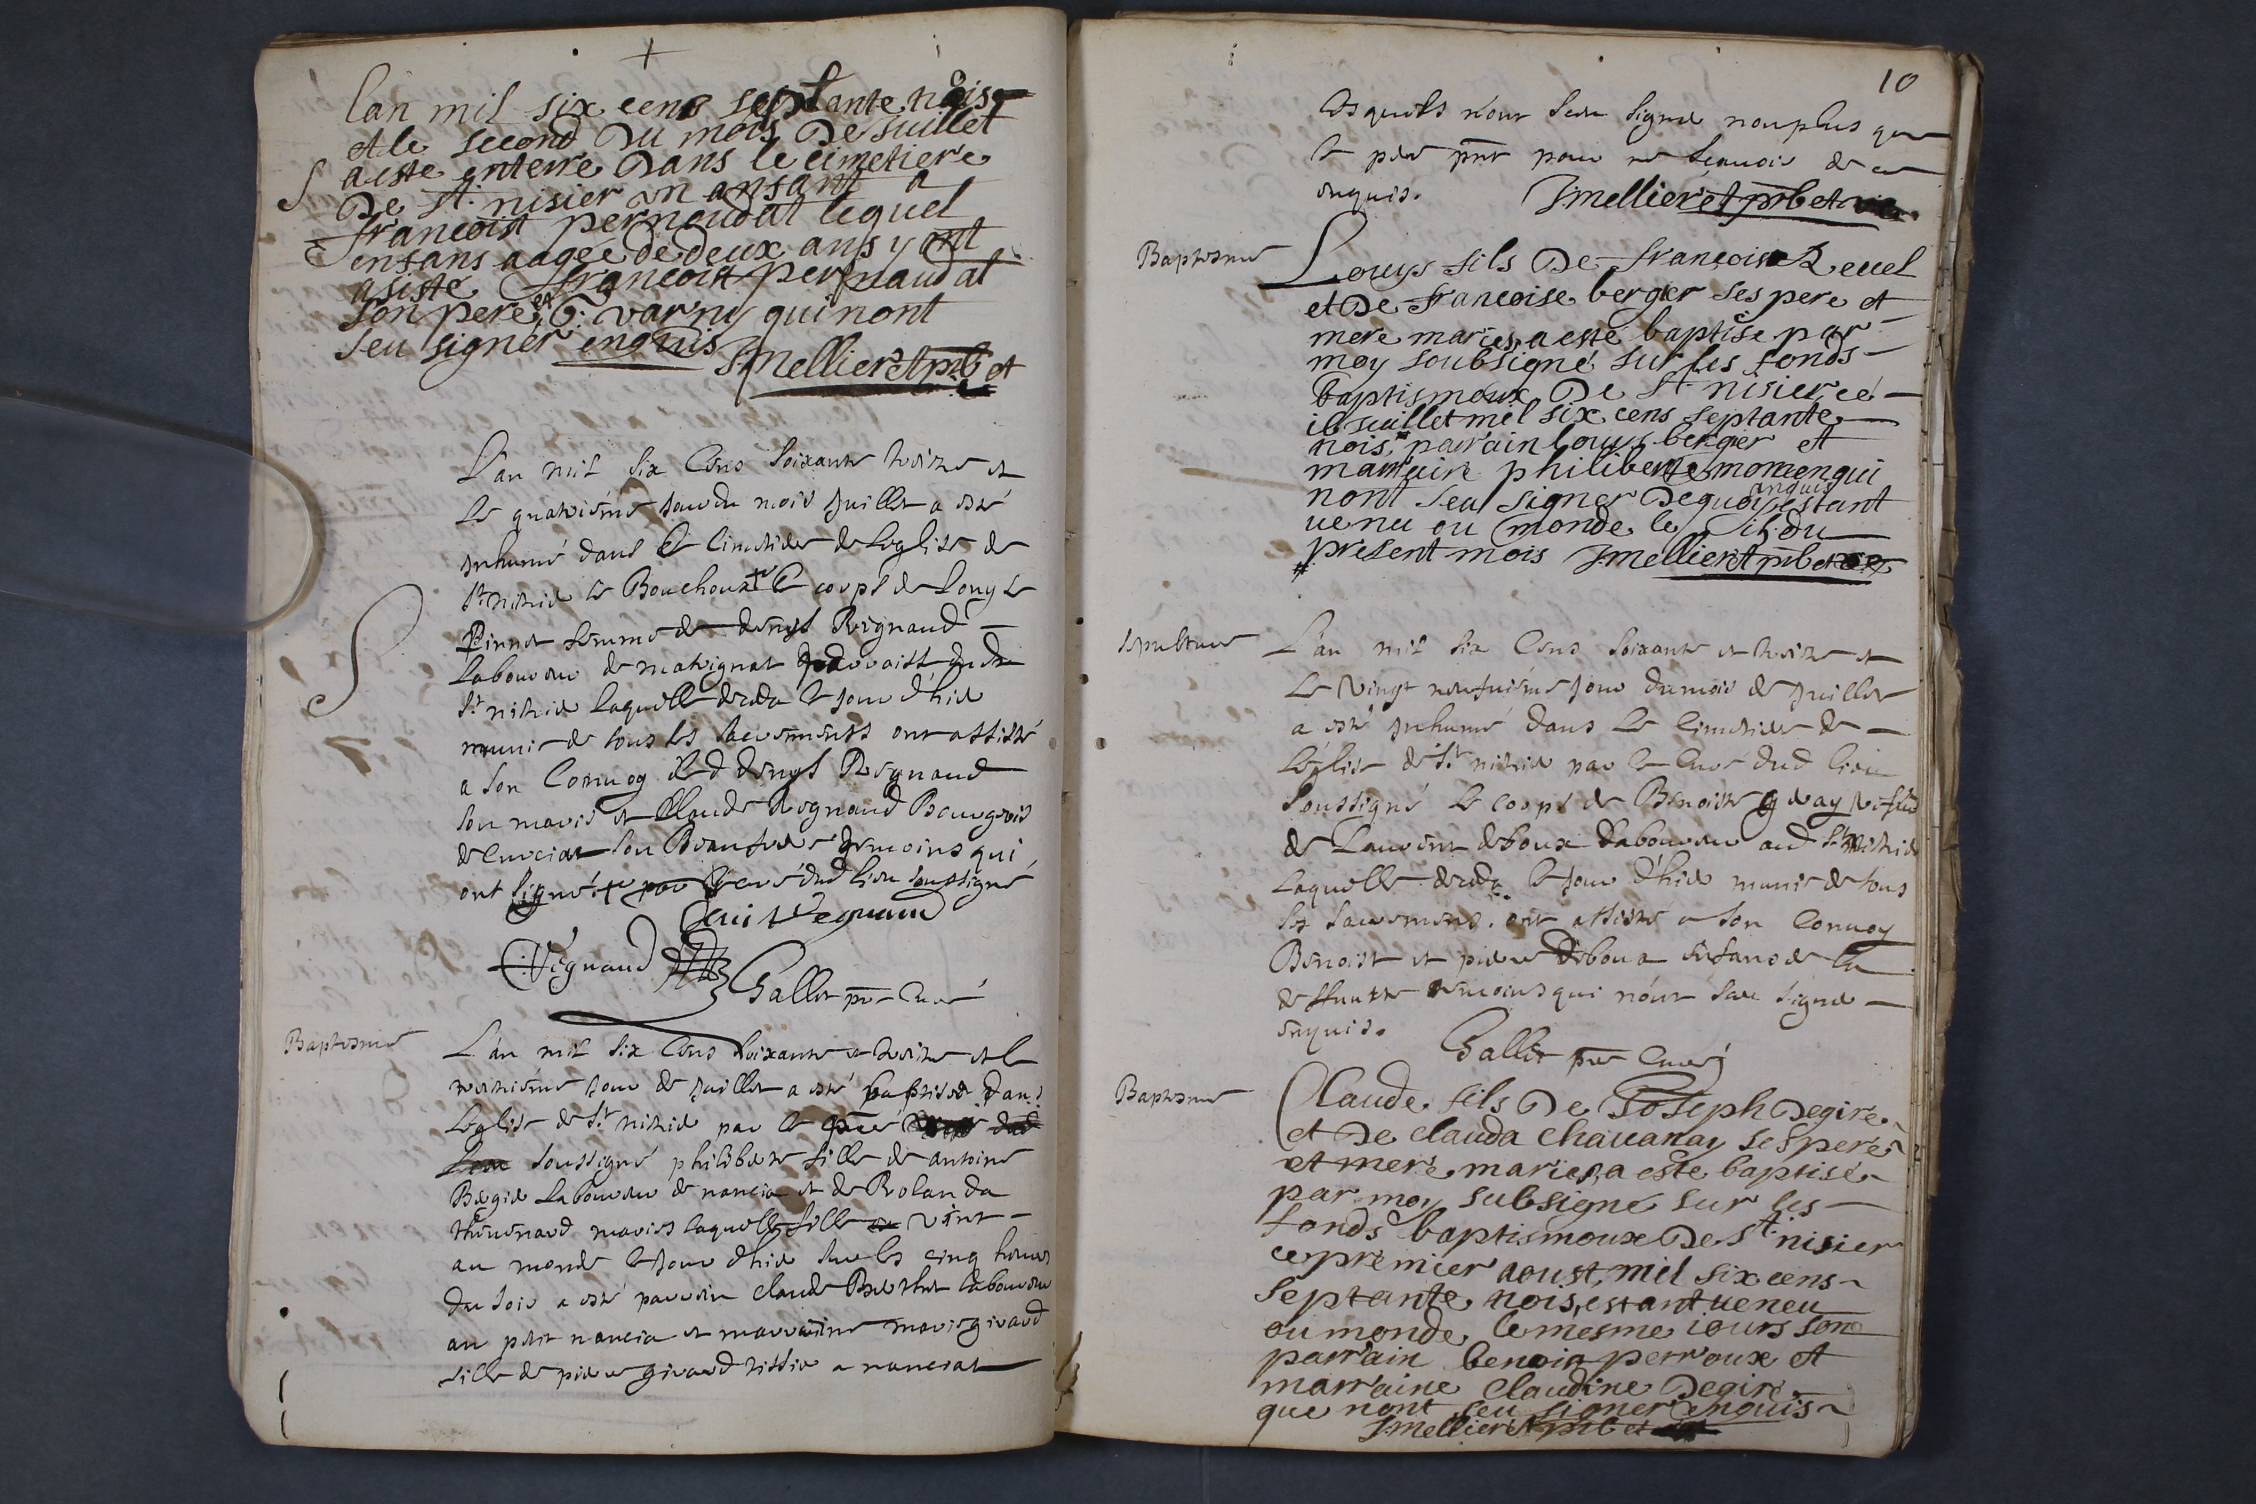 lan mil six cens septante nois
et le second du mois de Juillet
a este enterre dans le cimetiere
De St. nisier un ansant a
francoist pernoudat lequel
ensans aagee de deux ans y ont
asiste francoist pernaudat
son pere et C. varny qui nont
seu signer enquis
J mellieret prb et
L'an mil six Cens soixante treize et
Le quatriéme jour du mois Juillet a esté
Inhumé dans Le Cimetiere de Leglise de
St nizier Le Bouchoux Le corps de Louyse
Pirnet femme de denys Regnaud
Laboureur de matignat paroaisse dudt
St nizier laquelle deceda Le jour d'hier
munie de tous les sacrements ont assisté
a son Convoy led denys Regnaud
son maris et Claude Regnaud Bourgeois
de Curciat son Beaufrere temoins qui
ont signé curé dud lieu soussigné
Denis Regnaud
C: Regnaud
Gallet ptre Curé
Baptesme
L'an mil six Cens soixante et treize et le
treiziéme jour de Juillet a esté baptisée dans
Leglise de St nizier par le
soussigné philiberte fille de antoine
Laboureur de nancia et de Rolanda
Thevenard maries laquelle fille vint
au monde Le jour d'hier sur les cinq heures
du soir a esté parrain claude Berthet laboureur
au petit nancia et marraine marie girard
fille de pierre girard tissier a nanciat
10
Lesquels n'ont sceu signer nonplus que
le pere pnt pour ne scauoir de ce
enquis. J mellieret prb et
Baptesme
Louys fils De françois Reuel
et De francoise bergier ses pere et
mere maries, a esté baptise par
moy soubsigné sur les fonds
baptismoux De St nisier ce
Juillet mil six cens septante
nois, parrain louys bergier et
marraire philiberte momen qui
nont seu signer Dequoi enquis estant
uenu ou monde le du
present mois J mellieret prb et
Sepulture
L'an mil six Cens soixante et treize et
Le vingt neufuiéme jour du mois de Juillet
a esté Inhumé dans Le Cimetiere de
Léglise de St nizier par le Curé dud lieu
soussigné Le corps de Benoiste
de Laurent deboux Laboureur aud St nizier
Laquelle deceda le jour d'hier munie de tous
les sacremens. ont assisté a son Convoy
Benoist et pierre Deboux enfans de la
deffuncte temoins qui n'ont sceu signer
enquis.
Gallet ptre Curé
Baptesme
Claude fils De Joseph Degire
et De clauda chauanay ses pere
et mere maries, a este baptisé
par moy subsigné sur les
fonds baptismoux De St nisier
ce premier aoust, mil six cens
septante nois, estant ueneu
ou monde le mesme iours son
parrain benoit perroux et
marraine Claudine Degire
que nont seu signer enquis
J mellieret prb et